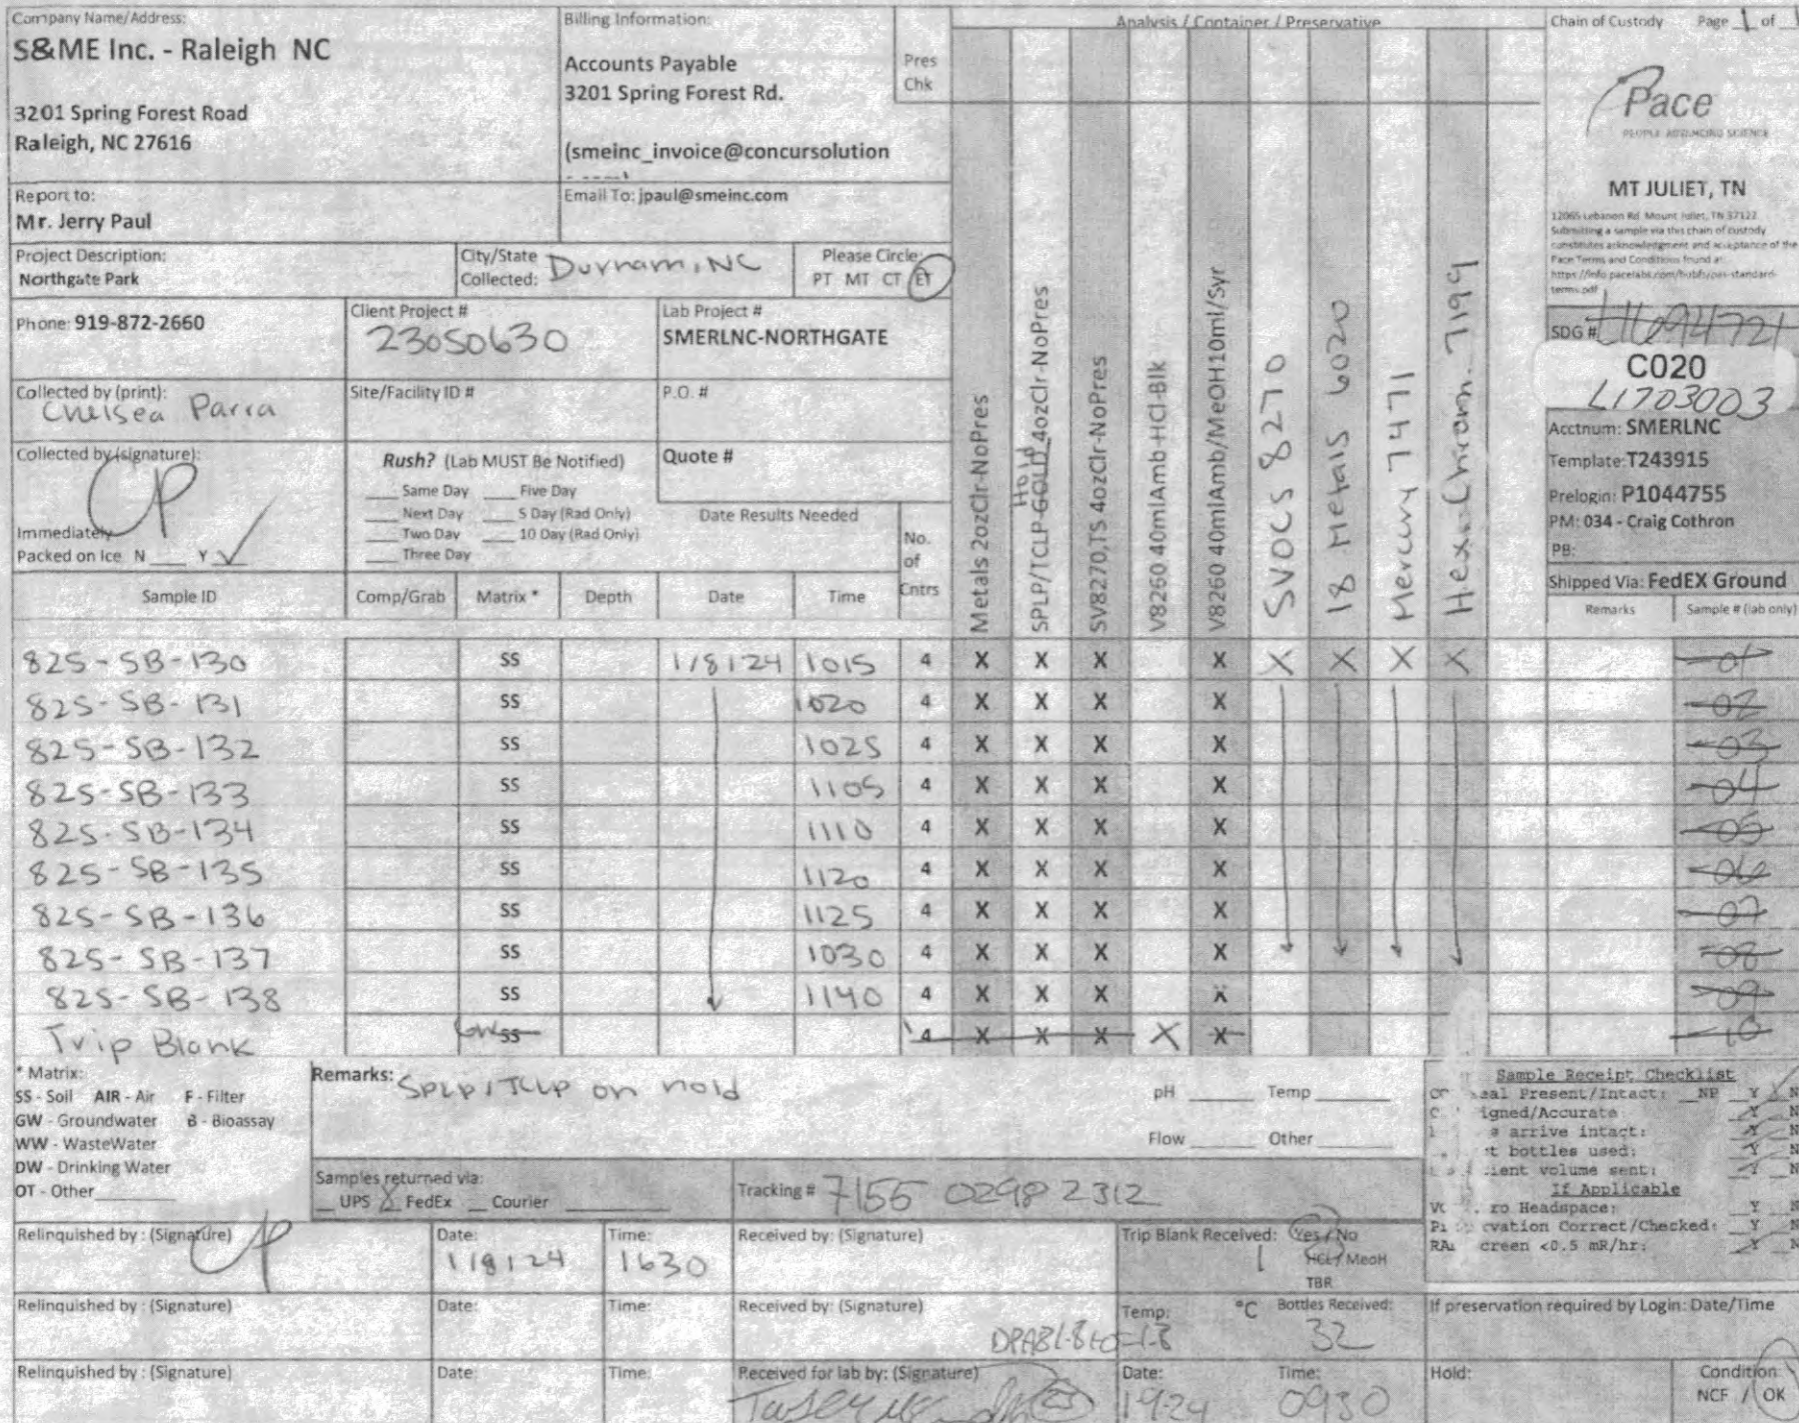 Company Name/Address:
S&ME Inc. - Raleigh NC
3201 Spring Forest Road
Raleigh, NC 27616
Billing Information:
Accounts Payable
3201 Spring Forest Rd.
(smeinc_invoice@concursolution
Pres
Chk
Analysis / Container / Preservative
Chain of Custody Page 1 of
Pace
PEOPLE ADVANCING SCIENCE
MT JULIET, TN
12065 Lebanon Rd Mount Juliet, TN 37122
Submitting a sample via this chain of custody
constitutes acknowledgment and acceptance of the
Pace Terms and Conditions found at:
https://info.pacelabs.com/hubfs/pas-standard-
terms.pdf
Report to:
Mr. Jerry Paul
Email To: jpaul@smeinc.com
Project Description:
Northgate Park
City/State
Collected: Durham, NC
Please Circle:
PT MT CT ET
Phone: 919-872-2660
Client Project #
23050630
Lab Project #
SMERLNC-NORTHGATE
Collected by (print):
Chelsea Parra
Site/Facility ID #
P.O. #
Collected by (signature):
CP
Immediately
Packed on Ice N ___ Y ✓
Rush? (Lab MUST Be Notified)
___ Same Day ___ Five Day
___ Next Day ___ 5 Day (Rad Only)
___ Two Day ___ 10 Day (Rad Only)
___ Three Day
Quote #
Date Results Needed
No.
of
Cntrs
Metals 2ozClr-NoPres
SPLP/TCLP-GCOLD Hold 4ozClr-NoPres
SV8270,TS 4ozClr-NoPres
V8260 40mlAmb-HCl-Blk
V8260 40mlAmb/MeOH10ml/Syr
SVOCS 8270
18 Metals 6020
Mercury 7471
Hex. Chrom. 7199
SDG # L1694721
C020
L1703003
Acctnum: SMERLNC
Template: T243915
Prelogin: P1044755
PM: 034 - Craig Cothron
PB:
Shipped Via: FedEX Ground
Sample ID Comp/Grab Matrix * Depth Date Time Remarks Sample # (lab only)
825-SB-130 SS 1/8/24 1015 4 X X X X X X X X -01
825-SB-131 SS 1020 4 X X X X -02
825-SB-132 SS 1025 4 X X X X -03
825-SB-133 SS 1105 4 X X X X -04
825-SB-134 SS 1110 4 X X X X -05
825-SB-135 SS 1120 4 X X X X -06
825-SB-136 SS 1125 4 X X X X -07
825-SB-137 SS 1030 4 X X X X -08
825-SB-138 SS 1140 4 X X X X -09
Trip Blank GW SS 1 4 X X X X X -10
* Matrix:
SS - Soil AIR - Air F - Filter
GW - Groundwater B - Bioassay
WW - WasteWater
DW - Drinking Water
OT - Other
Remarks: SPLP/TCLP on hold
pH ___ Temp ___
Flow ___ Other ___
Sample Receipt Checklist
eal Present/Intact: NP Y N
igned/Accurate: Y N
e arrive intact: Y N
t bottles used: Y N
ient volume sent: Y N
If Applicable
ro Headspace: Y N
vation Correct/Checked: Y N
creen <0.5 mR/hr: Y N
Samples returned via:
__ UPS X FedEx __ Courier
Tracking # 7155 0298 2312
Relinquished by : (Signature) CP
Date: 1/8/24
Time: 1630
Received by: (Signature)
Trip Blank Received: Yes / No
1 HCL / MeoH
TBR
Relinquished by : (Signature)
Date:
Time:
Received by: (Signature)
Temp: °C Bottles Received:
DPAB1.8+0=1.8 32
If preservation required by Login: Date/Time
Relinquished by : (Signature)
Date:
Time:
Received for lab by: (Signature)
Date: 1-9-24
Time: 0930
Hold:
Condition:
NCF / OK